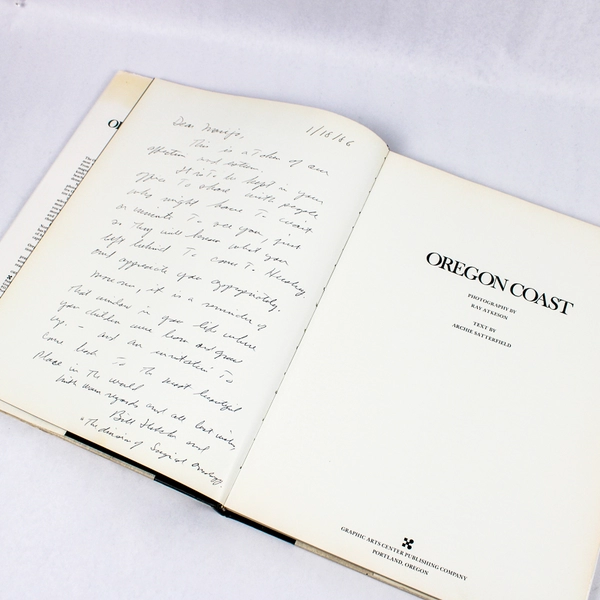 1/18/86
Dear
This is a Token of our
affection and esteem.
It is To be kept in your
office To share with people
who might have To wait
To see you, just
so They will know what you
left behind To come To Hershey
and approach you appropriately.
moreover, it is a reminder of
That window in your life where
your children were born and grew
up. - and an invitation To
come back To The most beautiful
place in The world
with warm regards and all best wishes,
Bill Fletcher and
The division of Surgical Oncology
OREGON COAST
PHOTOGRAPHY BY
RAY ATKESON
TEXT BY
ARCHIE SATTERFIELD
GRAPHIC ARTS CENTER PUBLISHING COMPANY
PORTLAND, OREGON